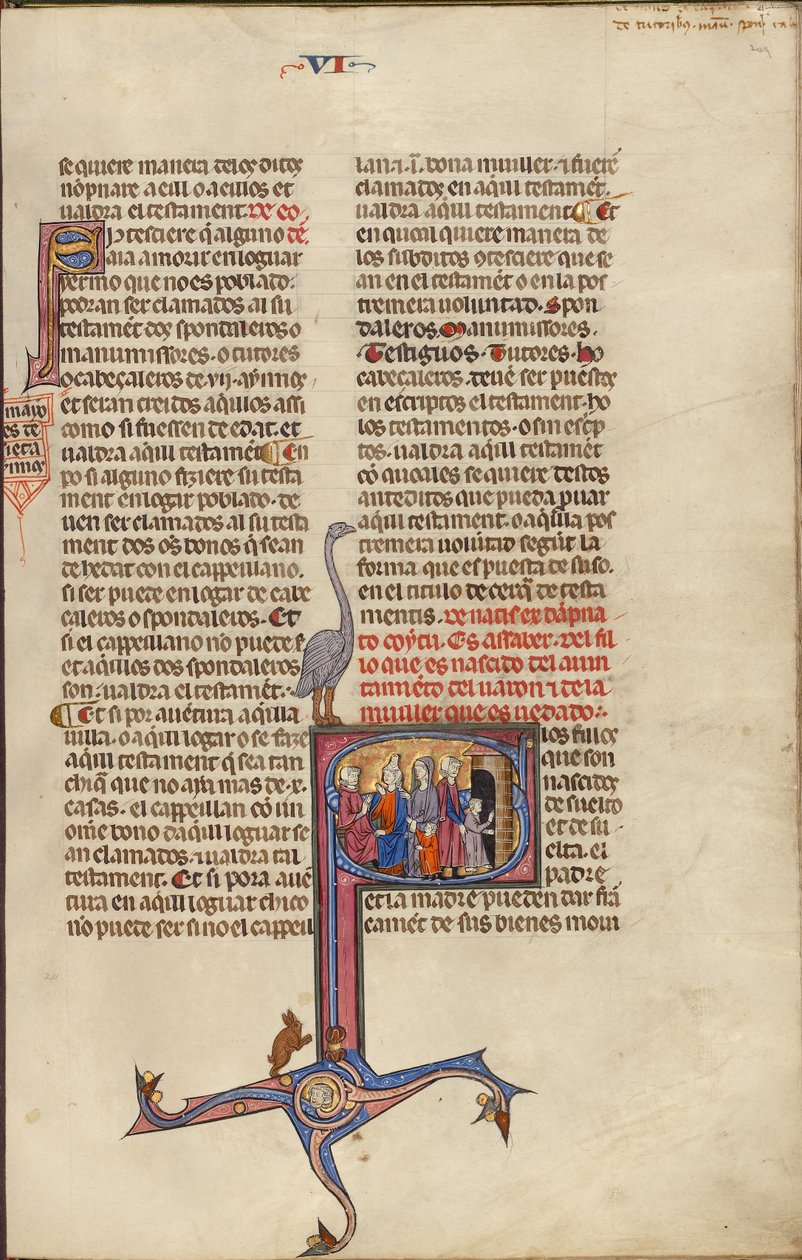 VI
de tutorib9
se quiere manera delos ditos
nō puare a eill o a eillos et
ualdra el testament. De eo.
Si 9tesciere q̄ alguno de
uaia a morir en loguar
yermo que no es poblado.
podran ser clamados al su
testamēt dos spondaleros o
manumissores. o tutores
o cabeçaleros de .vii. aynnos
et seran creidos aqillos assi
como si fuessen de edat. et
ualdra aqill testamēt. En
po si alguno fiziere su testa
ment en logar poblado. de
uen ser clamados al su testa
ment dos oēs bonos q̄ sean
de hedat con el cappeillano.
si ser puede en logar de cabe
caleros o spondaleros. Et
si el cappeillano no puede s
et aqillos dos spondaleros
son. ualdra el testamēt.
Et si por auētura aqilla
uilla. o aqill logar o se faze
aqill testament q̄ sea tan
chiq̄ que no aya mas de .x.
casas. el cappeillan cō un
ome bono daqill loguar se
an clamados. ⁊ ualdra tal
testament. Et si pora auē
tura en aqill loguar chico
no puede ser sino el cappeill
mayo
es de
siera
ynnos
lan. ⁊ .i. bona muller. ⁊ fuerē
clamados en aqill testamēt.
ualdra aqill testament. Et
en qual quiere manera de
los subditos 9tesciere que se
an en el testamēt o en la pos
tremera uoluntad. Spon
daleros. Manumissores.
Testiguos. Tutores. Ho
cabeçaleros. deuē ser puestos
en escriptos el testament. ho
los testamentos. o sin escp
tos. ualdra aqill testamēt
cō quoales se quiere destos
anteditos que pueda puar
aqill testament. o aqilla pos
tremera uolūtad segūt la
forma que es puesta de suso.
en el titulo de cerq̄ de testa
mentis. De natis ex dāpna
to coytu. Es assaber. Del fil
lo que es nascido del aiun
tamiēto del uaron ⁊ de la
muller que es uedado.
los fillos
que son
nascidos
de suelto
et de su
elta. el
padre
et la madre pueden dar frā
camēt de sus bienes moui